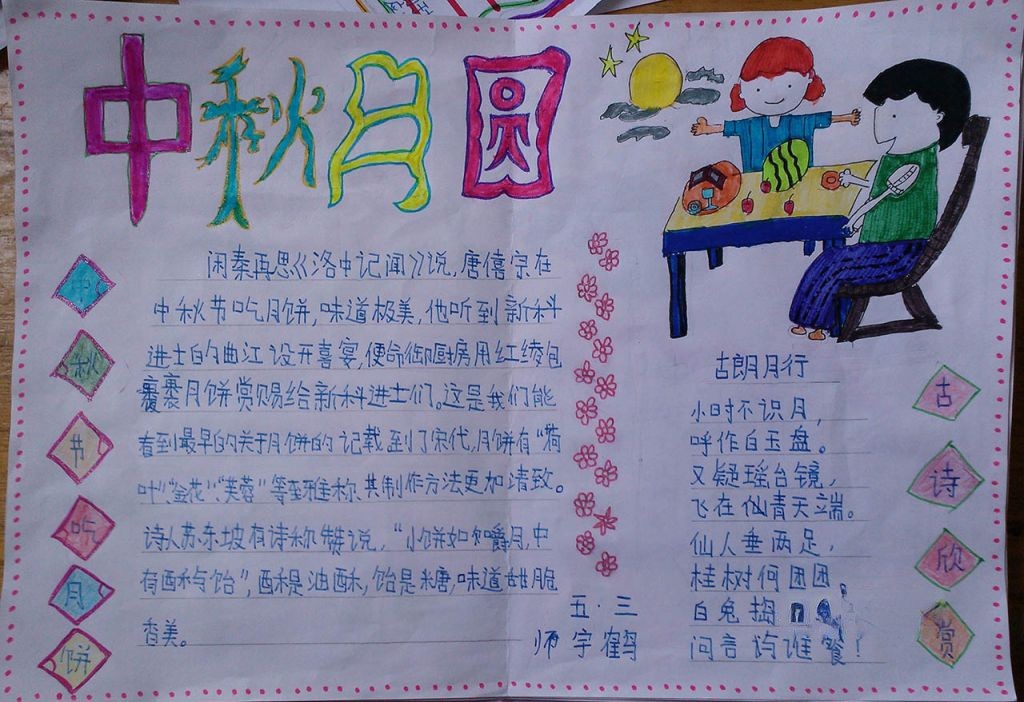 中秋月圆
中秋节吃月饼
闲秦再思《洛中记闻》说,唐僖宗在
中秋节吃月饼,味道极美,他听到新科
进士的曲江设开喜宴,便命御厨房用红绫包
裹月饼赏赐给新科进士们。这是我们能
看到最早的关于月饼的记载到了宋代,月饼有“荷
叶”“金花”、“芙蓉”等雅称,其制作方法更加清致。
诗人苏东坡有诗称赞说,“小饼如嚼月,中
有酥与饴”,酥是油酥,饴是糖,味道甜脆
香美。
五·三
师宇鹤
古朗月行
小时不识月,
呼作白玉盘。
又疑瑶台镜,
飞在仙青天端。
仙人垂两足,
桂树何团团。
白兔捣
问言与谁餐!
古诗欣赏